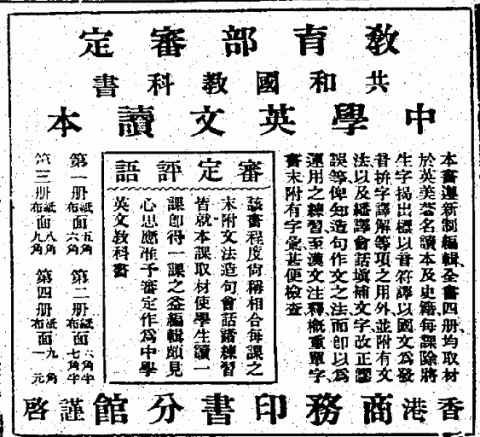 教育部審定
共和國教科書
中學英文讀本
本書遵新制編輯全書四册均取材
於英美著名讀本及史籍每課除將
生字揭出標以音符譯以國文爲發
音拼字譯解等項之用外並附有文
法以及繙譯會話填補文字改正謬
誤等俾知造句作文之法而卽以爲
運用之練習至漢文注釋概重單字
書末附有字彙甚便檢查
審定評語
該書程度尙稱相合每課之
末附文法造句會話諸練習
皆就本課取材使學生讀一
課卽得一課之益編輯頗見
心思應准予審定作爲中學
英文教科書
第一册 紙面五角 布面六角
第二册 紙面六角半 布面七角半
第三册 紙面八角 布面九角
第四册 紙面九角 布面一元
香港商務印書分館謹啓